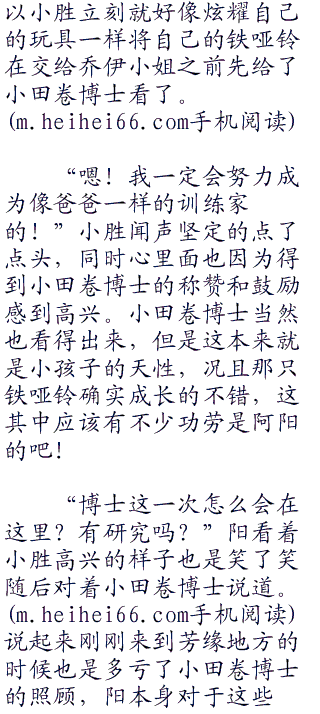 以小胜立刻就好像炫耀自己
的玩具一样将自己的铁哑铃
在交给乔伊小姐之前先给了
小田卷博士看了。
(m.heihei66.com手机阅读)
“嗯！我一定会努力成
为像爸爸一样的训练家
的！”小胜闻声坚定的点了
点头，同时心里面也因为得
到小田卷博士的称赞和鼓励
感到高兴。小田卷博士当然
也看得出来，但是这本来就
是小孩子的天性，况且那只
铁哑铃确实成长的不错，这
其中应该有不少功劳是阿阳
的吧！
“博士这一次怎么会在
这里？有研究吗？”阳看着
小胜高兴的样子也是笑了笑
随后对着小田卷博士说道。
(m.heihei66.com手机阅读)
说起来刚刚来到芳缘地方的
时候也是多亏了小田卷博士
的照顾，阳本身对于这些